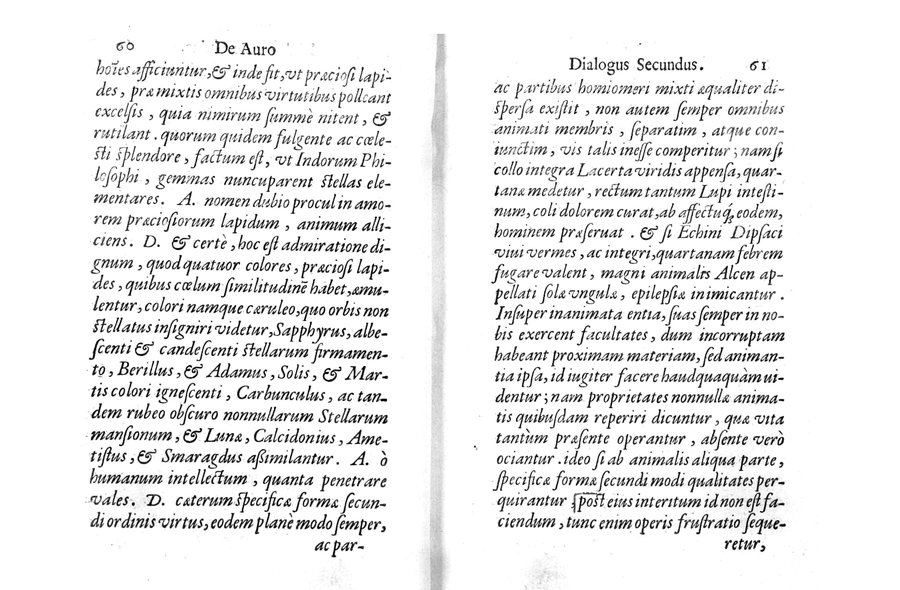 60 De Auro
hoīes afficiuntur,& inde fit,vt præciosi lapi-
des, præ mixtis omnibus virtutibus polleant
excelsis, quia nimirum summè nitent, &
rutilant. quorum quidem fulgente ac cœle-
sti splendore, factum est, vt Indorum Phi-
losophi, gemmas nuncuparent stellas ele-
mentares. A. nomen dubio procul in amo-
rem præciosiorum lapidum, animum alli-
ciens. D. & certè, hoc est admiratione di-
gnum, quod quatuor colores, præciosi lapi-
des, quibus cœlum similitudinē habet,æmu-
lentur, colori namque cæruleo,quo orbis non
stellatus insigniri videtur,Sapphyrus, albe-
scenti & candescenti stellarum firmamen-
to, Berillus, & Adamus, Solis, & Mar-
tis colori ignescenti, Carbunculus, ac tan-
dem rubeo obscuro nonnullarum Stellarum
mansionum, & Lunæ, Calcidonius, Ame-
tistus, & Smaragdus assimilantur. A. ò
humanum intellectum, quanta penetrare
vales. D. cæterum specificæ formæ secun-
di ordinis virtus, eodem planè modo semper,
ac par-
Dialogus Secundus. 61
ac partibus homiomeri mixti æqualiter di-
spersa existit, non autem semper omnibus
animati membris, separatim, atque con-
iunctim, vis talis inesse comperitur; nam si
collo integra Lacerta viridis appensa, quar-
tanæ medetur, rectum tantum Lupi intesti-
num, coli dolorem curat,ab affectuq́; eodem,
hominem præseruat. & si Echini Dipsaci
viui vermes, ac integri,quartanam febrem
fugare valent, magni animalis Alcen ap-
pellati solæ vngulæ, epilepsiæ inimicantur.
Insuper inanimata entia, suas semper in no-
bis exercent facultates, dum incorruptam
habeant proximam materiam, sed animan-
tia ipsa, id iugiter facere haudquaquàm ui-
dentur; nam proprietates nonnullæ anima-
tis quibusdam reperiri dicuntur, quæ vita
tantum præsente operantur, absente verò
ociantur. ideo si ab animalis aliqua parte,
specificæ formæ secundi modi qualitates per-
quirantur post eius interitum id non est fa-
ciendum, tunc enim operis frustratio seque-
retur,